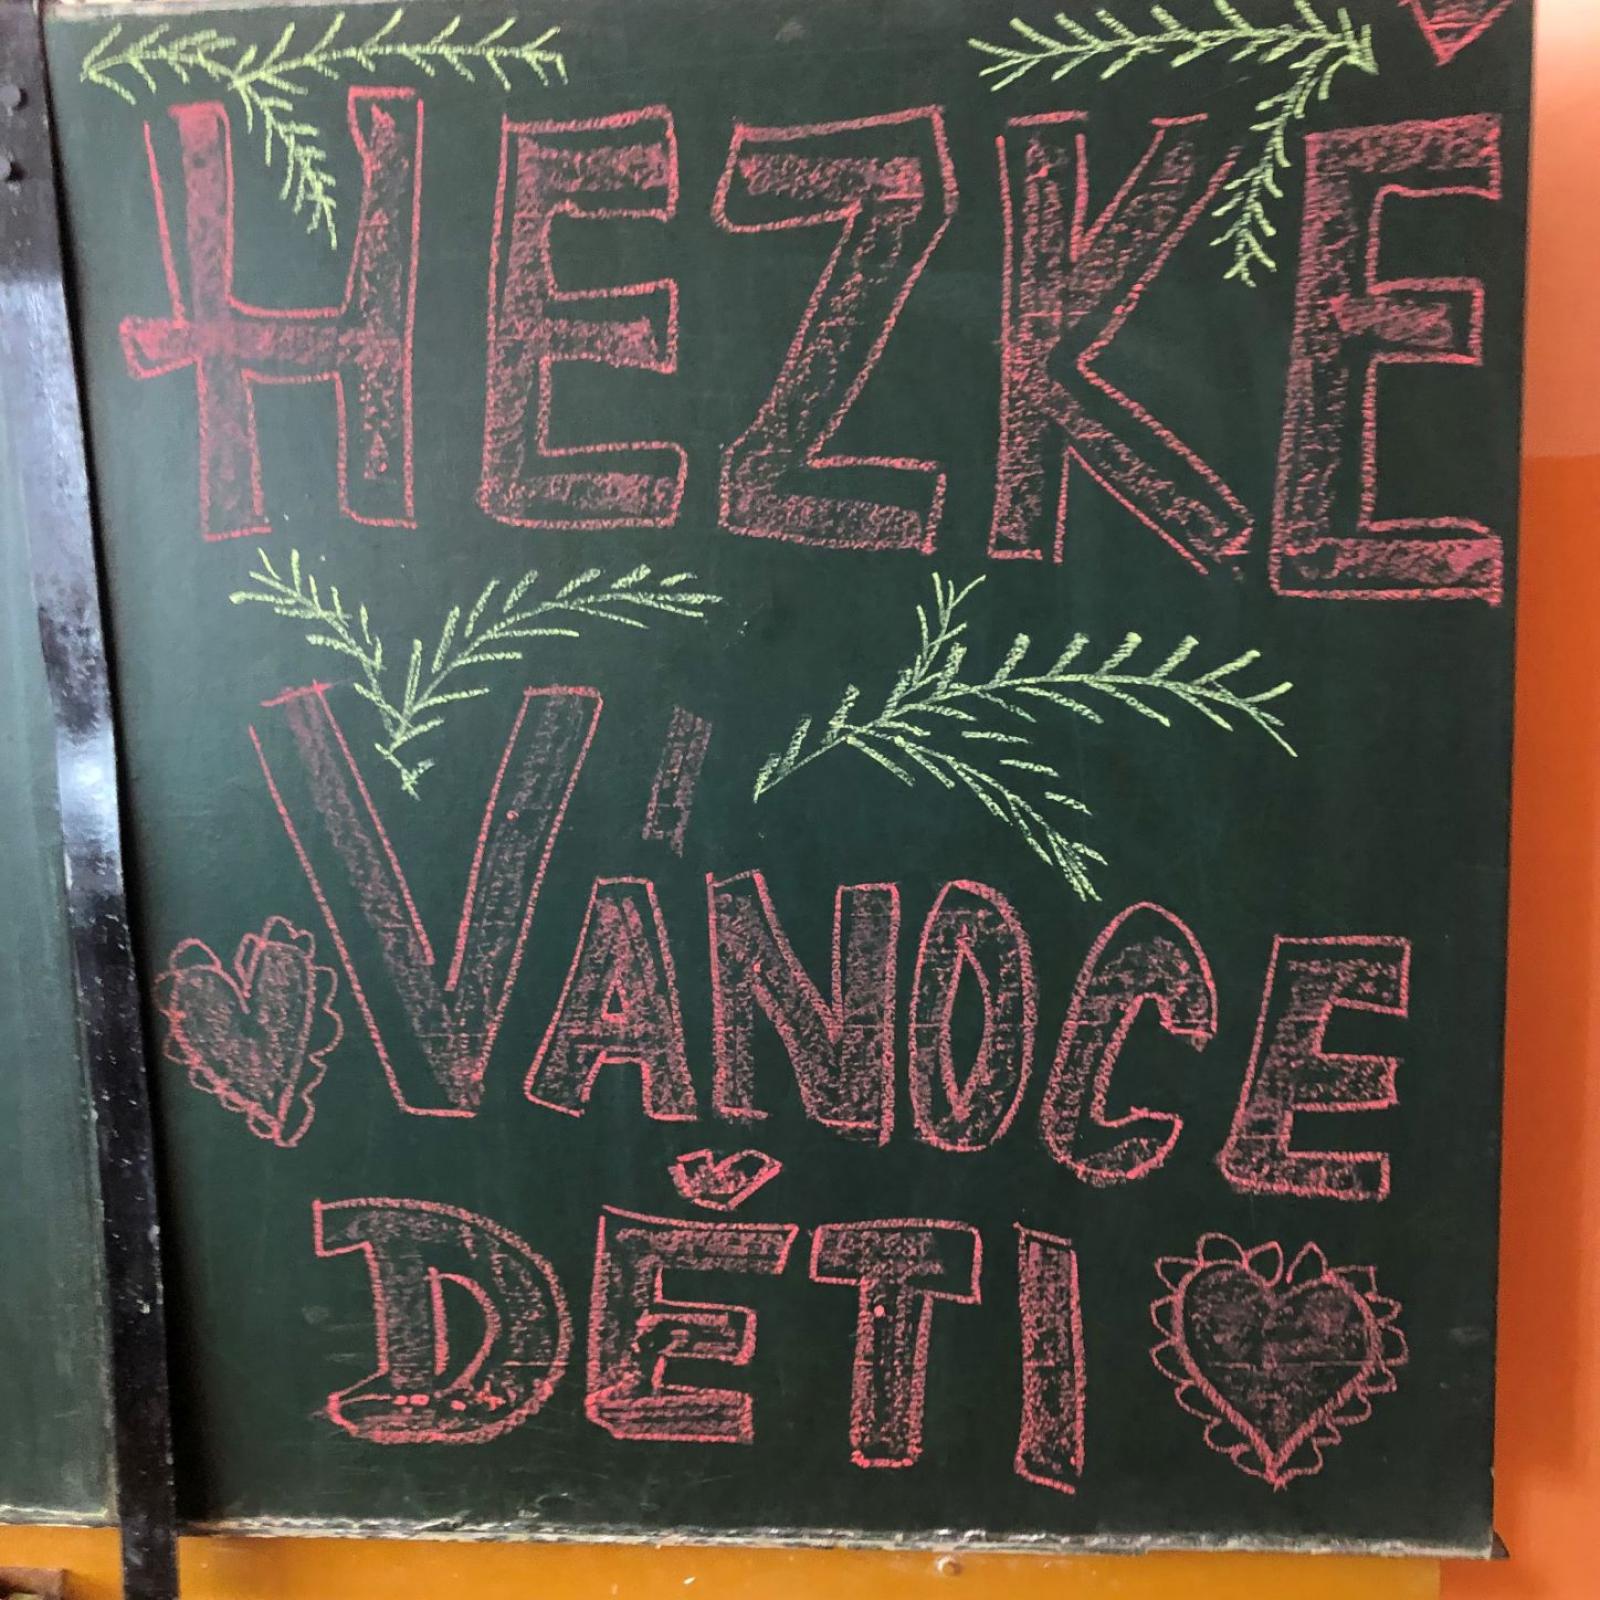 HEZKE
VÁNOCE
DĚTI